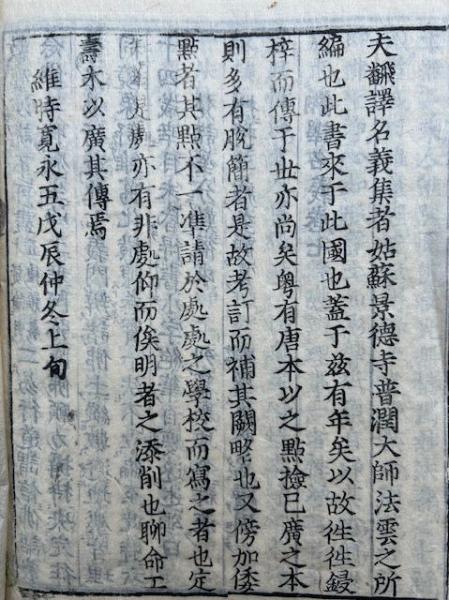 夫飜譯名義集者姑蘇景德寺普潤大師法雲之所
編也此書來于此國也蓋于玆有年矣以故徃徃鋟
梓而傳于丗亦尚矣粤有唐本以之點撿已廣之本
則多有脫簡者是故考訂而補其闕略也又傍加倭
點者其點不一準請於處處之學校而寫之者也定
亦有非處仰而俟明者之添削也聊命工
壽木以廣其傳焉
維時寬永五戊辰仲冬上旬